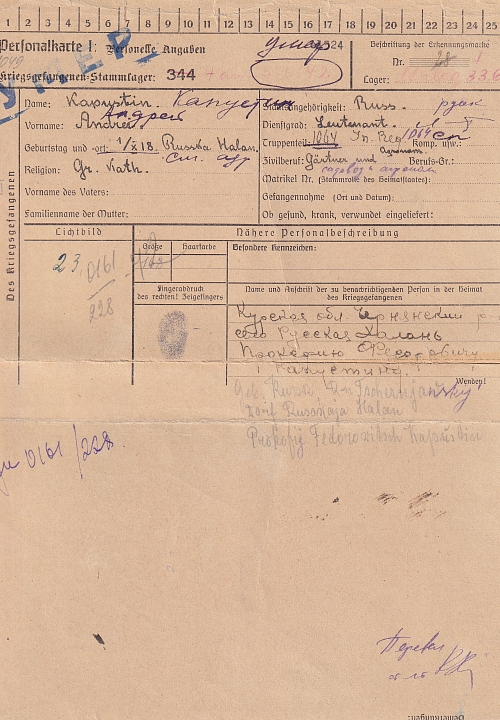 1 2 3 4 5 6 7 8 9 10 11 12 13 14 15 16 17 18 19 20 21 22 23 24 25
Personalkarte I: Personelle Angaben
Kriegsgefangenen-Stammlager: 344
УМЕР
Beschriftung der Erkennungsmarke
Nr. 28
Lager: 336
Des Kriegsgefangenen
Name: Kapustin. Капустин
Vorname: Andrei Андрей
Geburtstag und -ort: 1/X 18. Russka Halan.
Religion: Gr. Kath.
Vorname des Vaters:
Familienname der Mutter:
Staatsangehörigkeit: Russ.
Dienstgrad: Leutenant.
Truppenteil: 1064 In. Reg. 1064 сп Komp. usw.:
Zivilberuf: Gärtner und Agranom. Berufs-Gr.:
садовод и агроном
Matrikel Nr. (Stammrolle des Heimatstaates):
Gefangennahme (Ort und Datum):
Ob gesund, krank, verwundet eingeliefert:
Lichtbild
Nähere Personalbeschreibung
Größe
Haarfarbe
Besondere Kennzeichen:
23
0161
228
Fingerabdruck
des rechten! Zeigefingers
Name und Anschrift der zu benachrichtigenden Person in der Heimat
des Kriegsgefangenen
Курская обл. Чернянский р-н
село Русская Халань
Прокофию Федоровичу
Капустину
Wenden!
Geb. Kursk, R-n Tschernjansky
Dorf Russkaja Halan
Prokofij Fedorowitsch Kapustin
0161/228
Перевел
Bemerkungen: